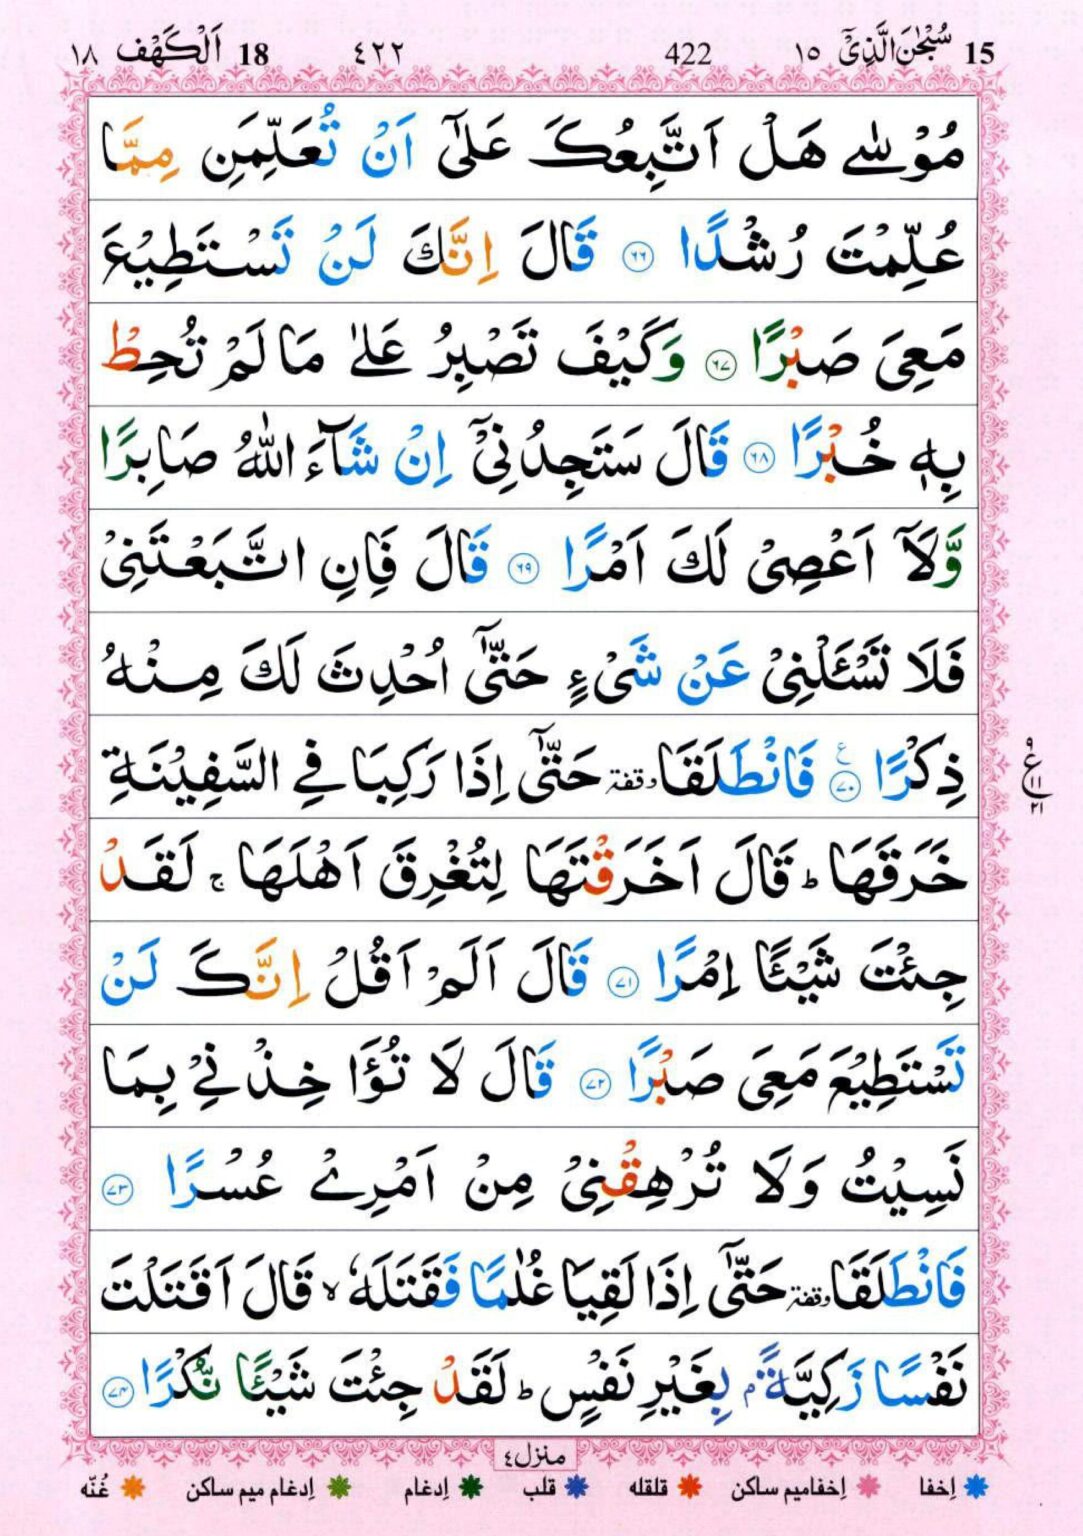 15 سُبْحٰنَ الَّذِیْۤ ١٥ 422 ٤٢٢ 18 اَلْكَهْف ١٨
مُوْسٰى هَلْ اَتَّبِعُكَ عَلٰۤى اَنْ تُعَلِّمَنِ مِمَّا
عُلِّمْتَ رُشْدًا ٦٦ قَالَ اِنَّكَ لَنْ تَسْتَطِیْعَ
مَعِیَ صَبْرًا ٦٧ وَكَیْفَ تَصْبِرُ عَلٰى مَا لَمْ تُحِطْ
بِهٖ خُبْرًا ٦٨ قَالَ سَتَجِدُنِیْۤ اِنْ شَآءَ اللّٰهُ صَابِرًا
وَّلَاۤ اَعْصِیْ لَكَ اَمْرًا ٦٩ قَالَ فَاِنِ اتَّبَعْتَنِیْ
فَلَا تَسْـَٔلْنِیْ عَنْ شَیْءٍ حَتّٰۤى اُحْدِثَ لَكَ مِنْهُ
ذِكْرًا ٧٠ ع فَانْطَلَقَا وقفة حَتّٰۤى اِذَا رَكِبَا فِی السَّفِیْنَةِ
٩ ع ١١ ٢١
خَرَقَهَا ؕ قَالَ اَخَرَقْتَهَا لِتُغْرِقَ اَهْلَهَا ۚ لَقَدْ
جِئْتَ شَیْـًٔا اِمْرًا ٧١ قَالَ اَلَمْ اَقُلْ اِنَّكَ لَنْ
تَسْتَطِیْعَ مَعِیَ صَبْرًا ٧٢ قَالَ لَا تُؤَاخِذْنِیْ بِمَا
نَسِیْتُ وَلَا تُرْهِقْنِیْ مِنْ اَمْرِیْ عُسْرًا ٧٣
فَانْطَلَقَا وقفة حَتّٰۤى اِذَا لَقِیَا غُلٰمًا فَقَتَلَهٗ ۙ قَالَ اَقَتَلْتَ
نَفْسًا زَكِیَّةًۢ بِغَیْرِ نَفْسٍ ؕ لَقَدْ جِئْتَ شَیْـًٔا نُّكْرًا ٧٤
منزل ٤
اِخفا اِخفامیم ساکن قلقله قلب اِدغام اِدغام میم ساکن غُنّه